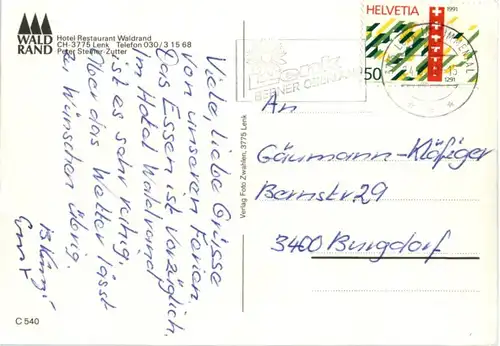 WALD
RAND
Hotel Restaurant Waldrand
CH-3775 Lenk Telefon 030/3 15 68
Peter Stettler-Zutter
Viele, liebe Grüsse
von unseren Ferien.
Das Essen ist vorzüglich.
Im Hotel Waldrand
ist es sehr ruhig.
Aber das Wetter lässt
zu Wünschen übrig.
C 540
Verlag Foto Zwahlen, 3775 Lenk
HELVETIA
1991
50
1291
Lenk
BERNER OBERLAND
An
Gäumann-Kläfiger
Bernstr 29
3400 Burgdorf